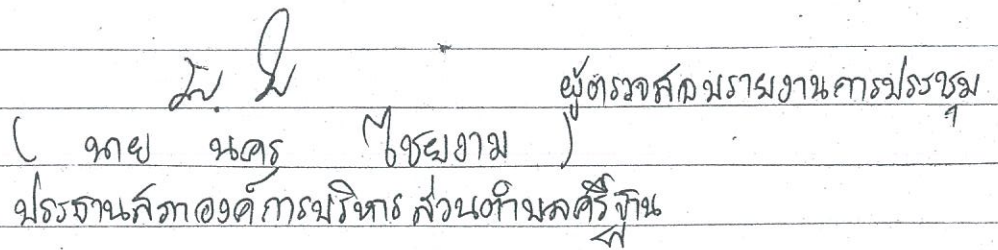 ผู้ตรวจสอบรายงานการประชุม
( นาย นคร ไชยงาม )
ประธานสภาองค์การบริหารส่วนตำบลคีรีฐาน